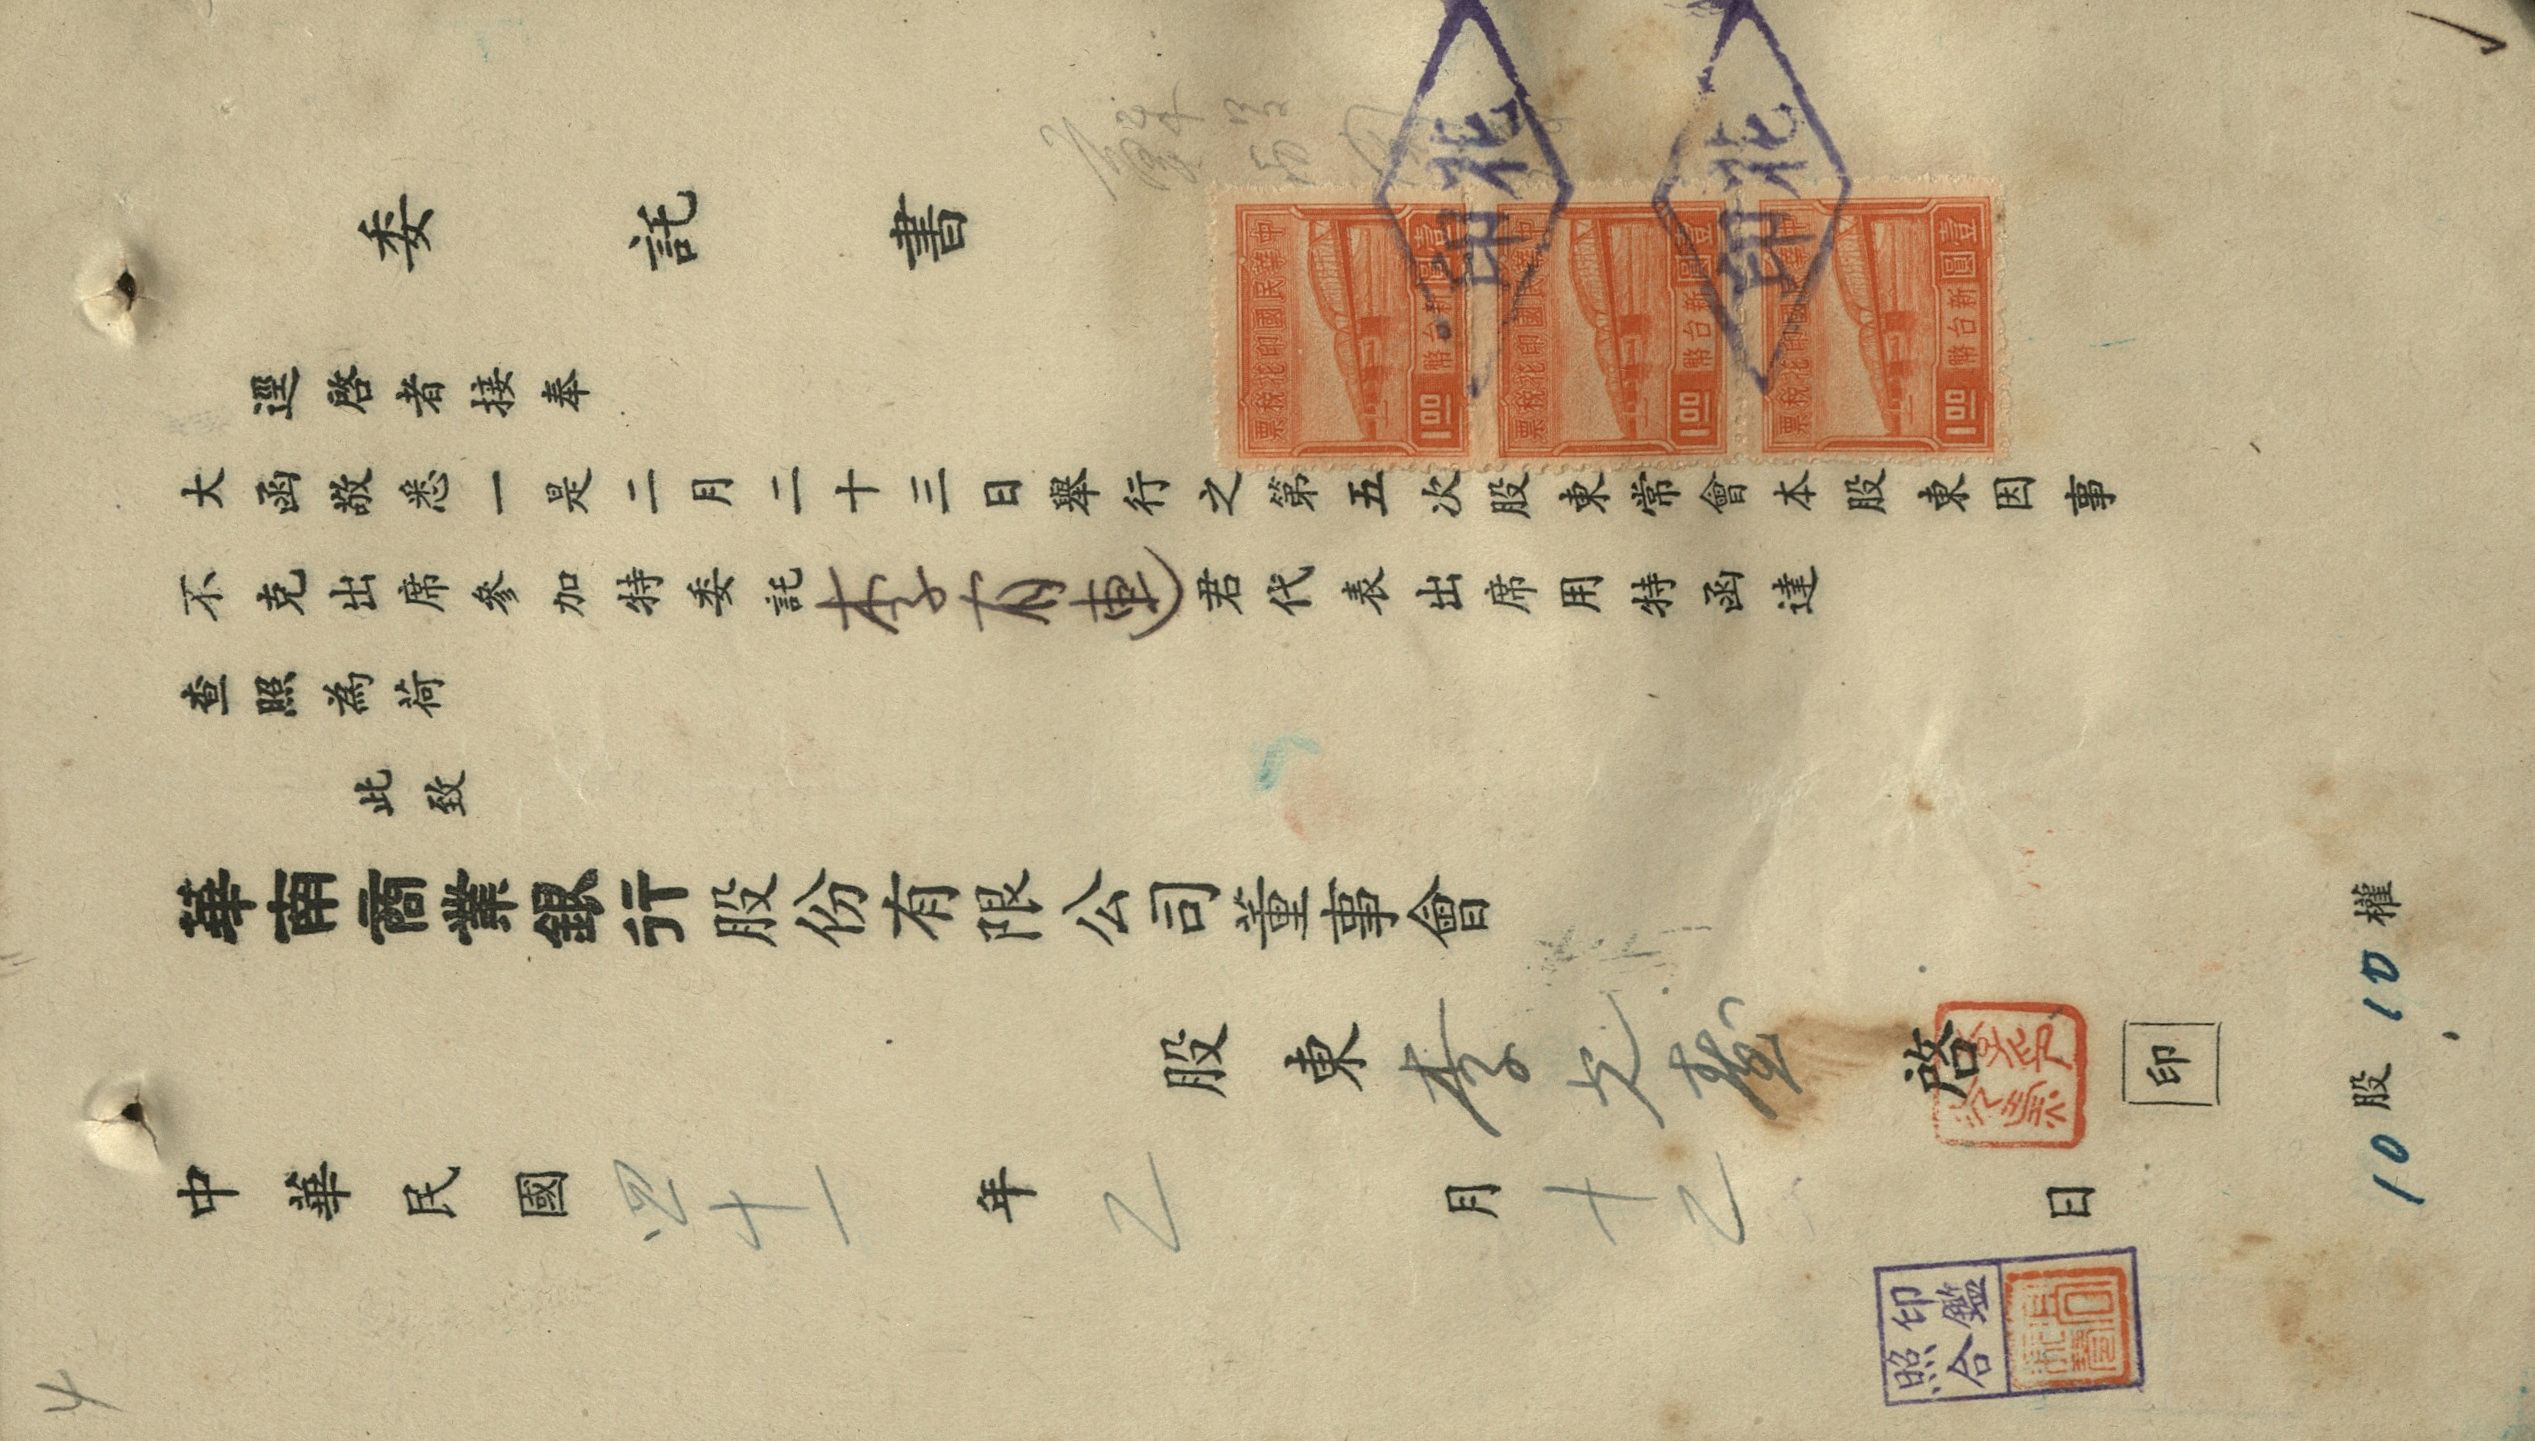 委託書
逕啓者接奉
大函敬悉一是二月二十三日舉行之第五次股東常會本股東因事
不克出席參加特委託李有連君代表出席用特函達
查照為荷
此致
華南商業銀行股份有限公司董事會
股東李 啓
印
中華民國四十一年2月十2日
10股10權
印鑑
照合
中華民國印花稅票
壹圓
新台幣
1.00
中華民國印花稅票
壹圓
新台幣
1.00
中華民國印花稅票
壹圓
新台幣
1.00
北印
北印